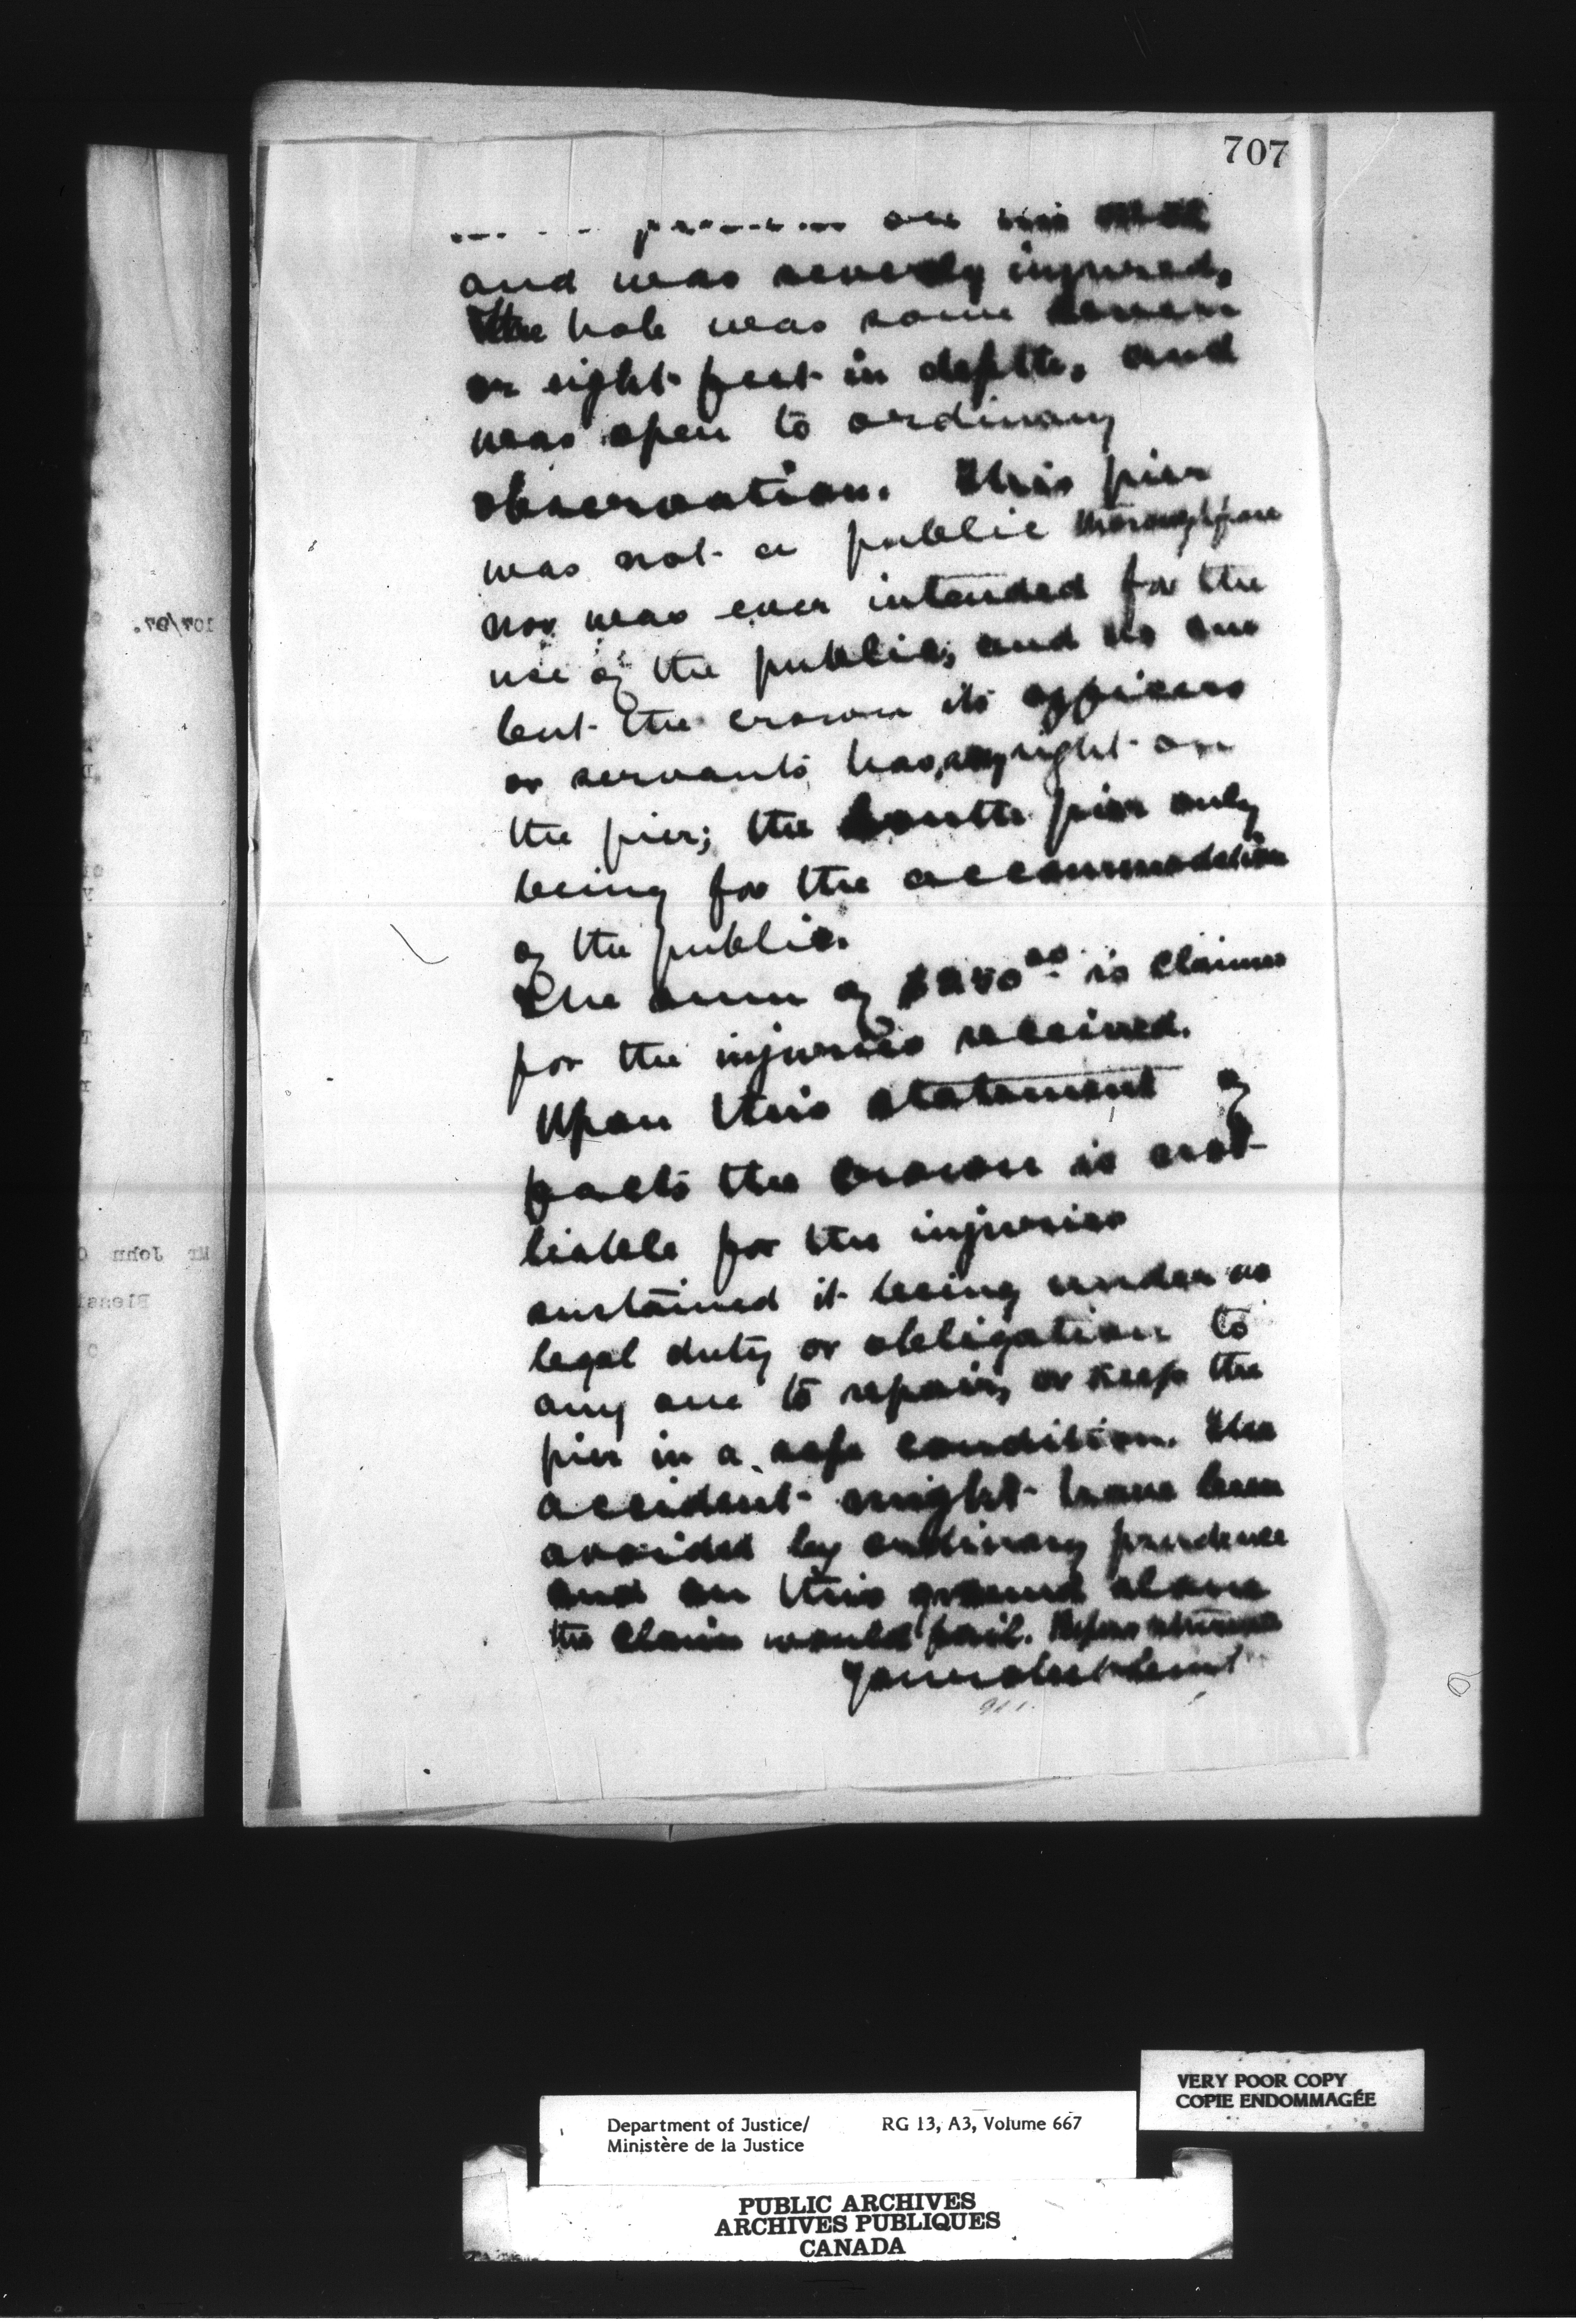 707
and was severely injured,
The hole was some seven
or eight feet in depth, and
was open to ordinary
observation. This pier
was not a public thoroughfare
nor was ever intended for the
use of the public; and no one
but the crown its officers
or servants has, any right on
the pier; the South pier only
being for the accommodation
of the public.
The sum of $250 00 is claimed
for the injuries received.
Upon this statement of
facts the crown is not
liable for the injuries
sustained it being under no
legal duty or obligation to
any one to repair, or keep the
pier in a safe condition. The
accident might have been
avoided by ordinary prudence
and on this ground alone
the claim would fail. Papers returned
Your obedt servt
107/97.
Mr John C
VERY POOR COPY
COPIE ENDOMMAGÉE
Department of Justice/ RG 13, A3, Volume 667
Ministère de la Justice
PUBLIC ARCHIVES
ARCHIVES PUBLIQUES
CANADA